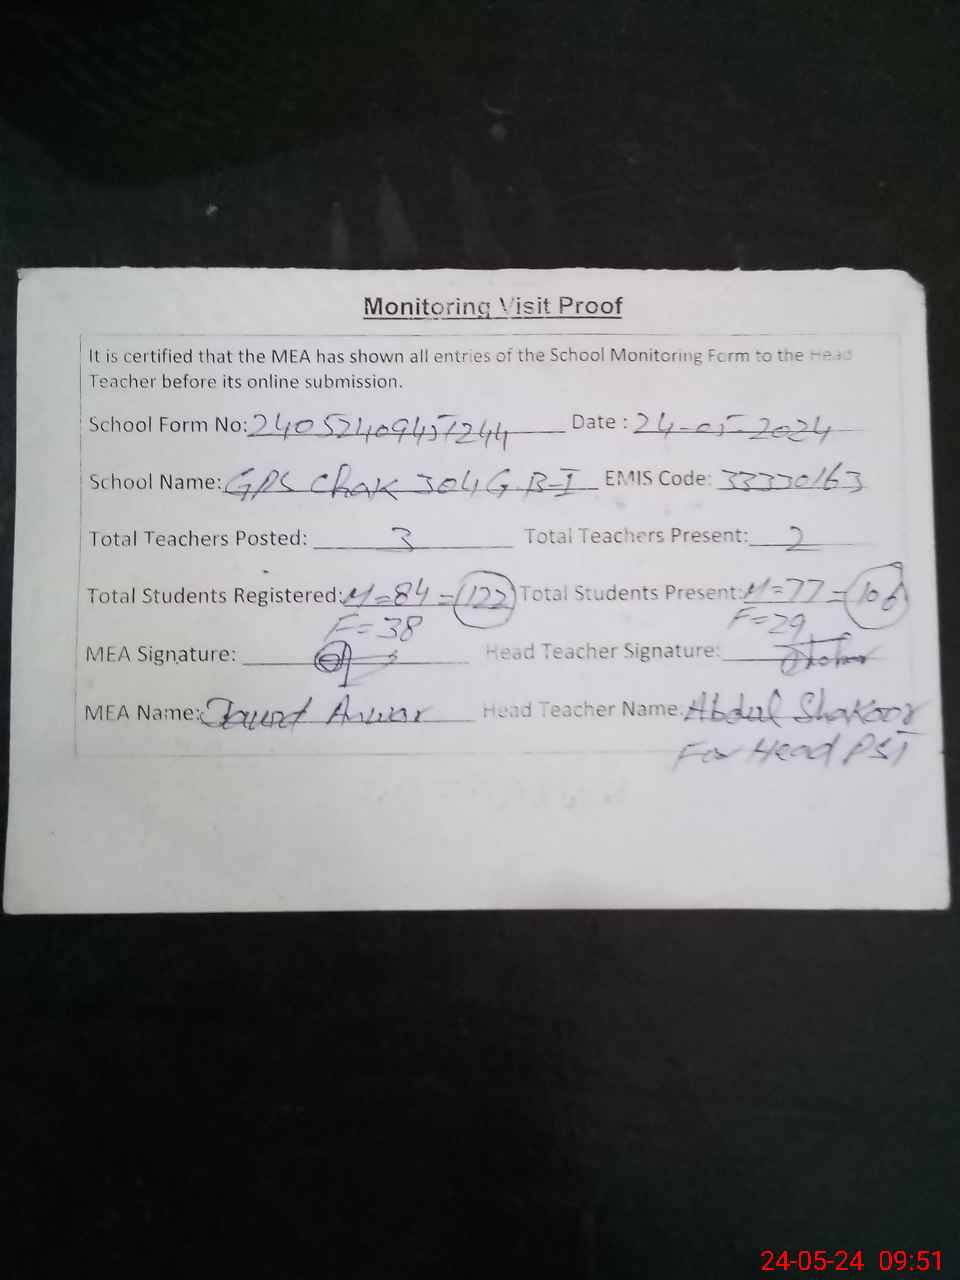 Monitoring Visit Proof
It is certified that the MEA has shown all entries of the School Monitoring Form to the Head
Teacher before its online submission.
School Form No: 24052409457244 Date : 24-05-2024
School Name: GPS Chak 304 G.B-I EMIS Code: 33330163
Total Teachers Posted: 3 Total Teachers Present: 2
Total Students Registered: M=84 =122 Total Students Present: M=77 =106
F=38 F=29
MEA Signature: Head Teacher Signature:
MEA Name: Anwar Head Teacher Name: Abdul Shakoor
For Head PST
24-05-24 09:51